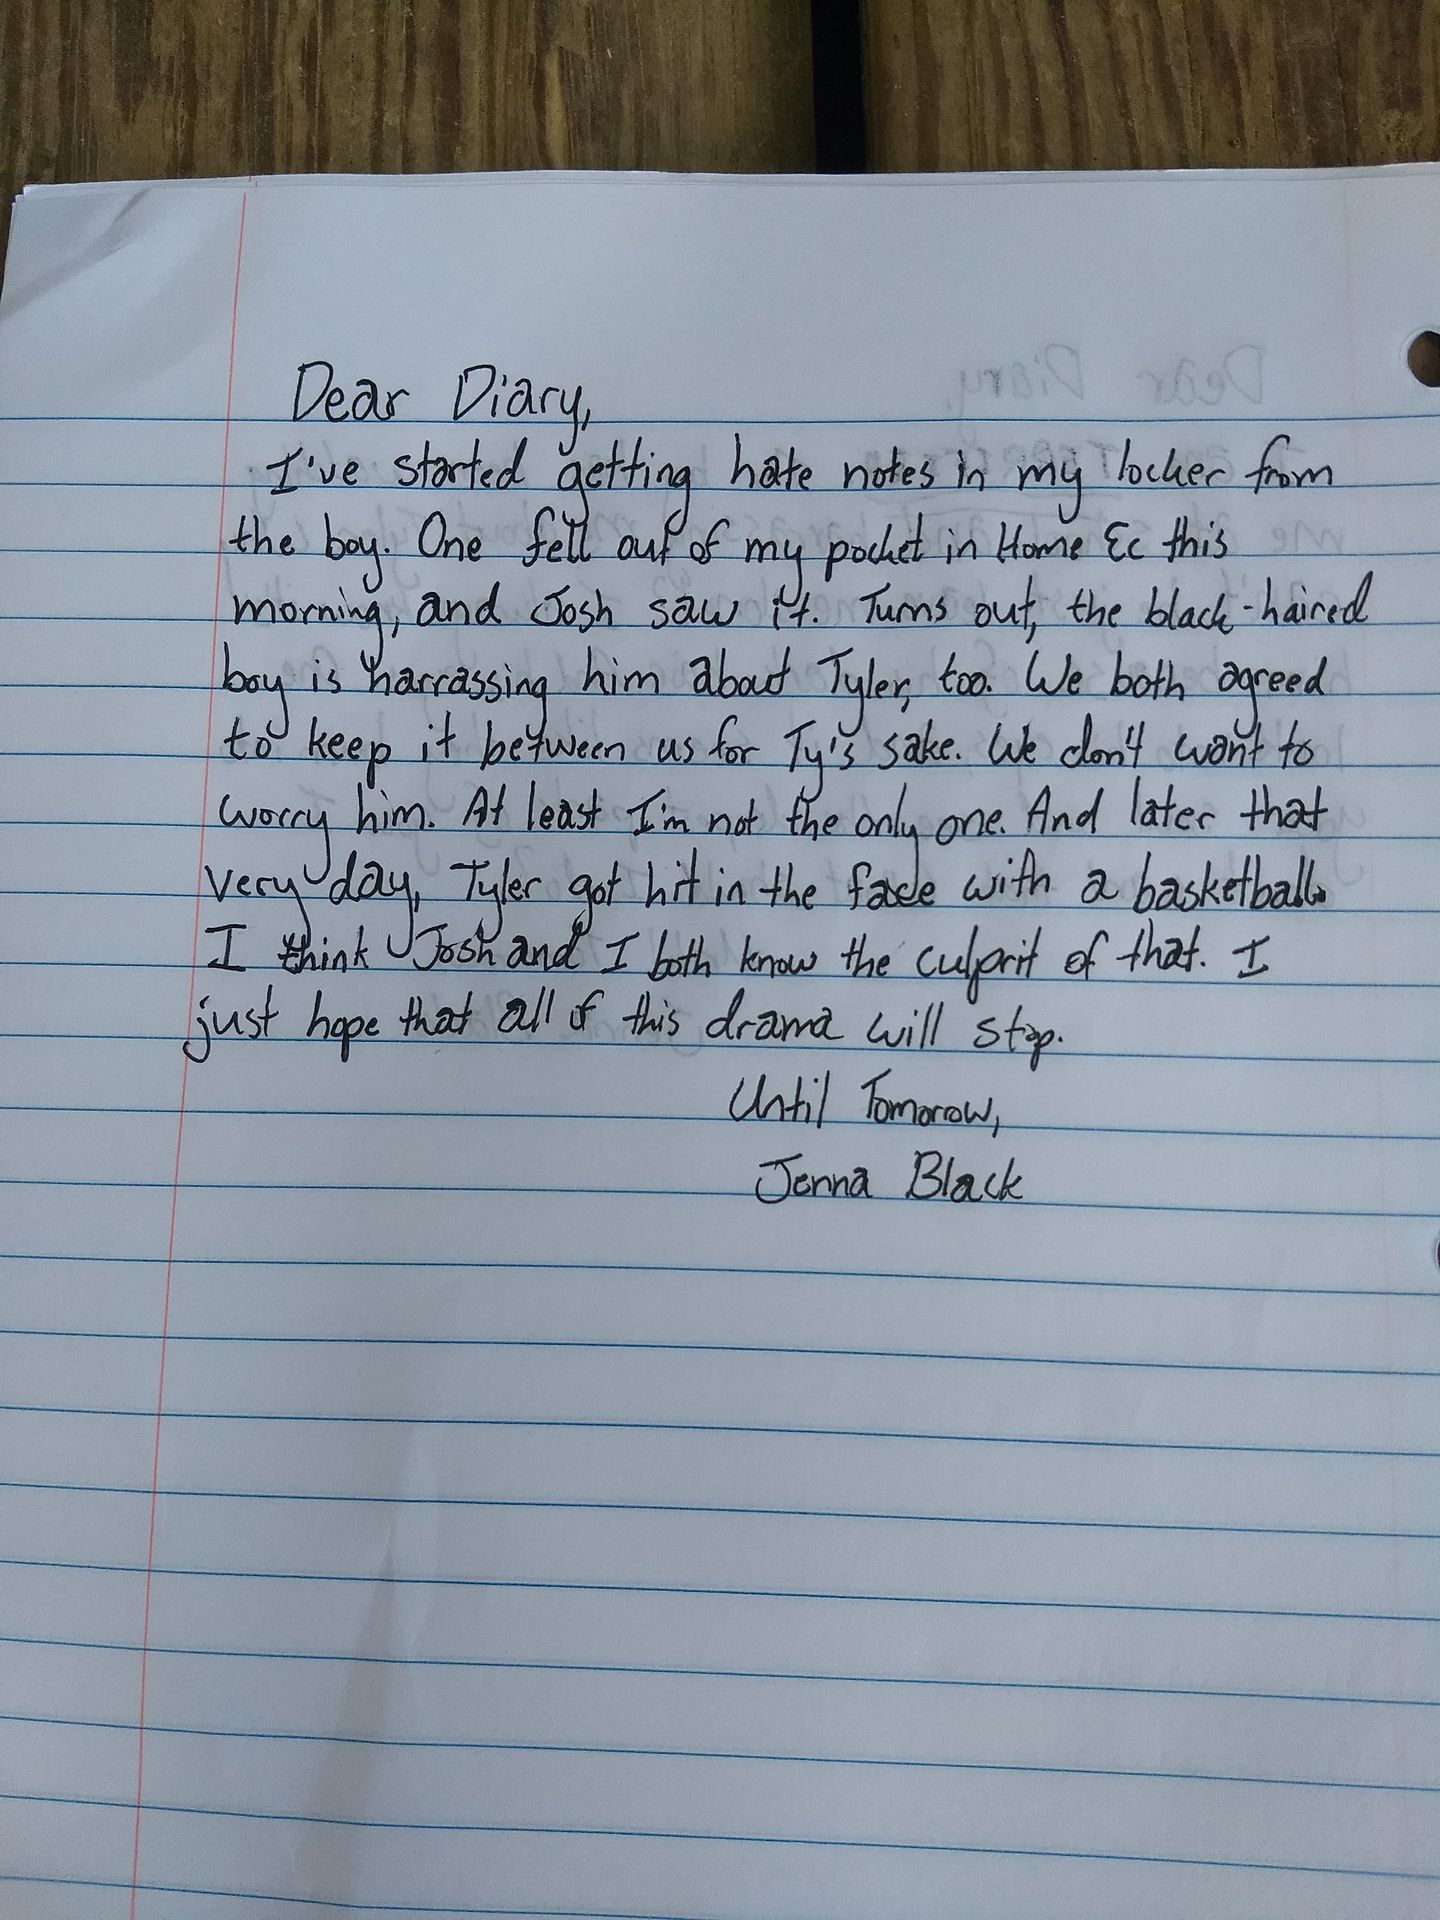 Dear Diary,
I've started getting hate notes in my locker from
the boy. One fell out of my pocket in Home Ec this
morning, and Josh saw it. Turns out, the black-haired
boy is harrassing him about Tyler, too. We both agreed
to keep it between us for Ty's sake. We don't want to
worry him. At least I'm not the only one. And later that
very day, Tyler got hit in the face with a basketball.
I think Josh and I both know the culprit of that. I
just hope that all of this drama will stop.
Until Tomorow,
Jenna Black